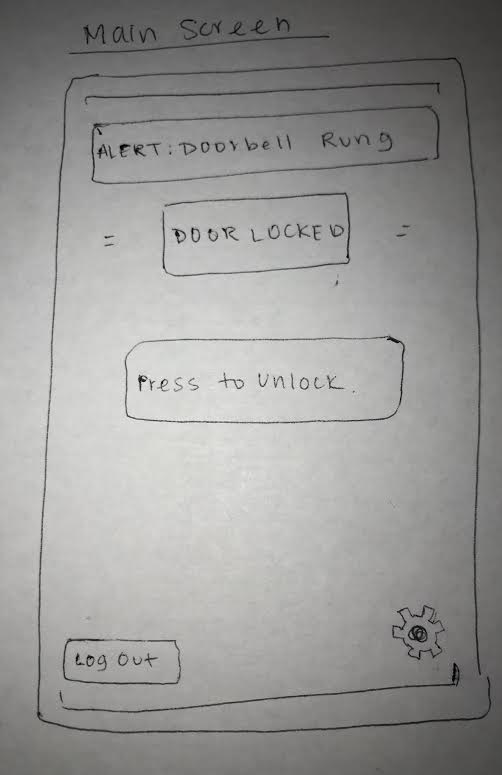 Main Screen
ALERT: Doorbell Rung
= DOOR LOCKED =
Press to Unlock.
Log Out